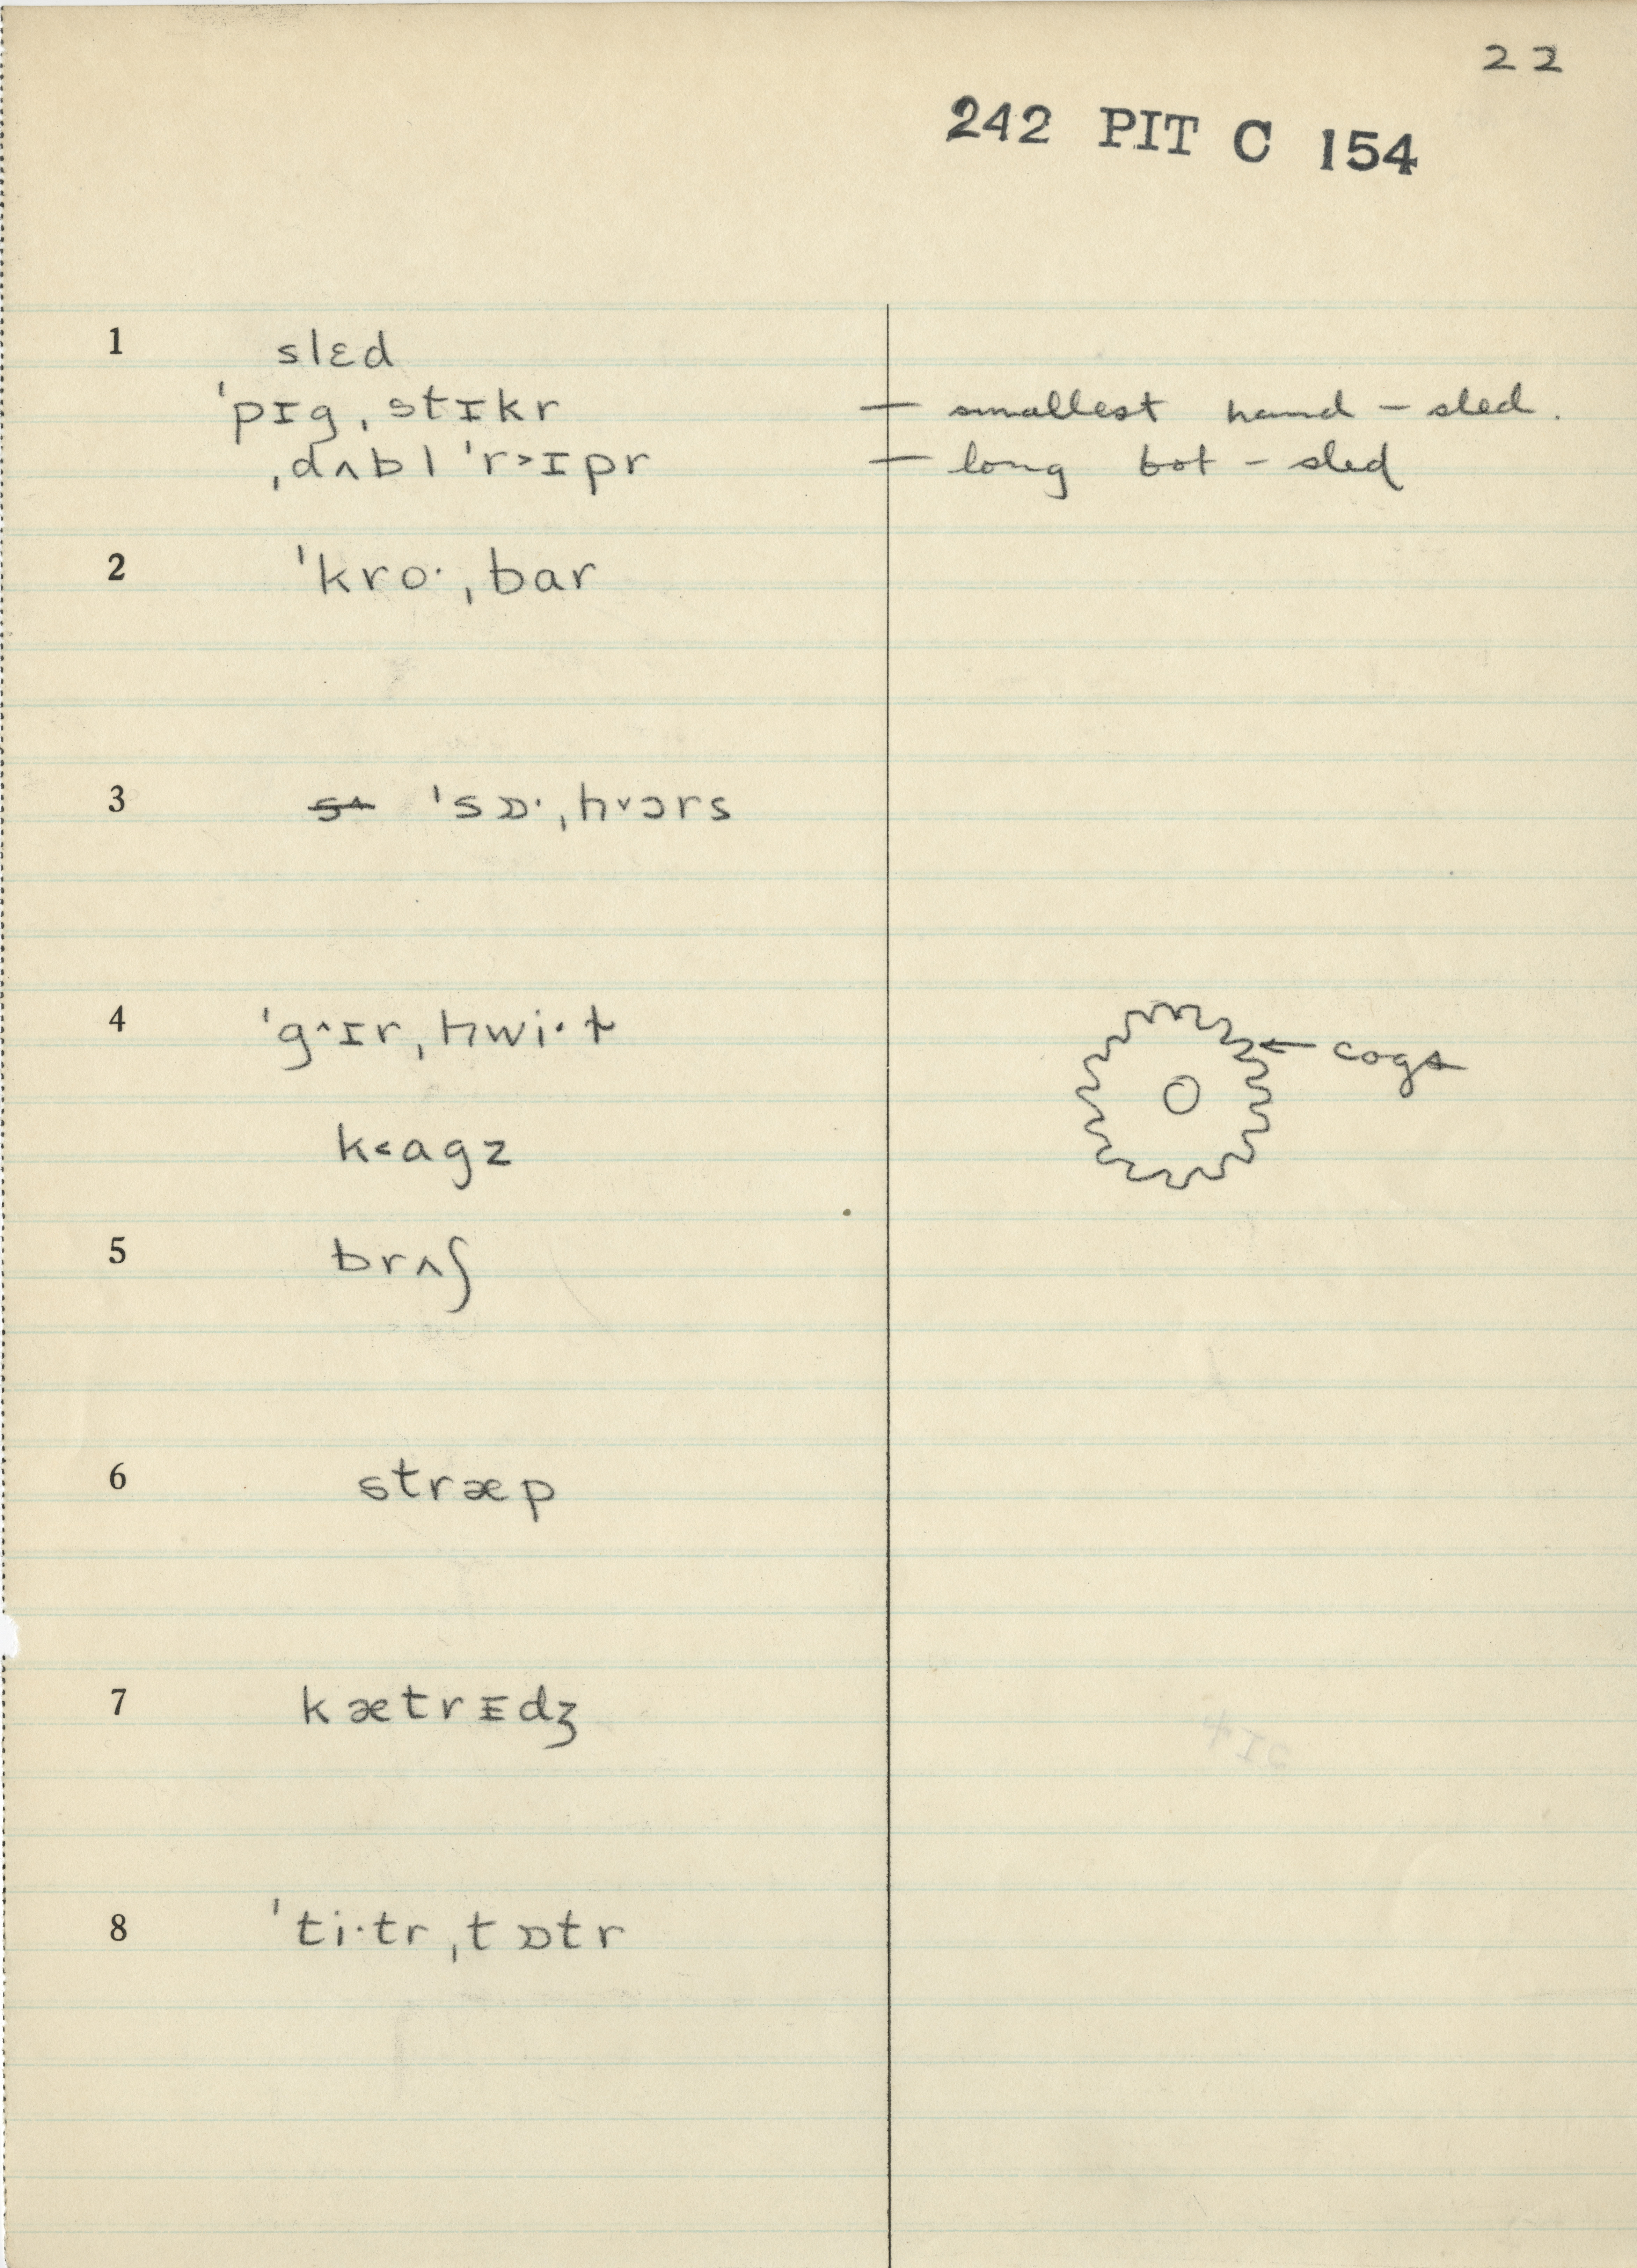 22
242 PIT C 154
1 slɛd
ˈpɪgˌstɪkr — smallest hand-sled.
ˌdʌbl ˈr˃ɪpr — long bot-sled
2 ˈkro·ˌbar
3 ˈsɒ·ˌh˅ɔrs
4 ˈg˄ɪrˌhwi·ɫ
← cogs
k˂agz
5 brʌʃ
6 stræp
7 kætrᵻdʒ
8 ˈti·trˌtɒtr